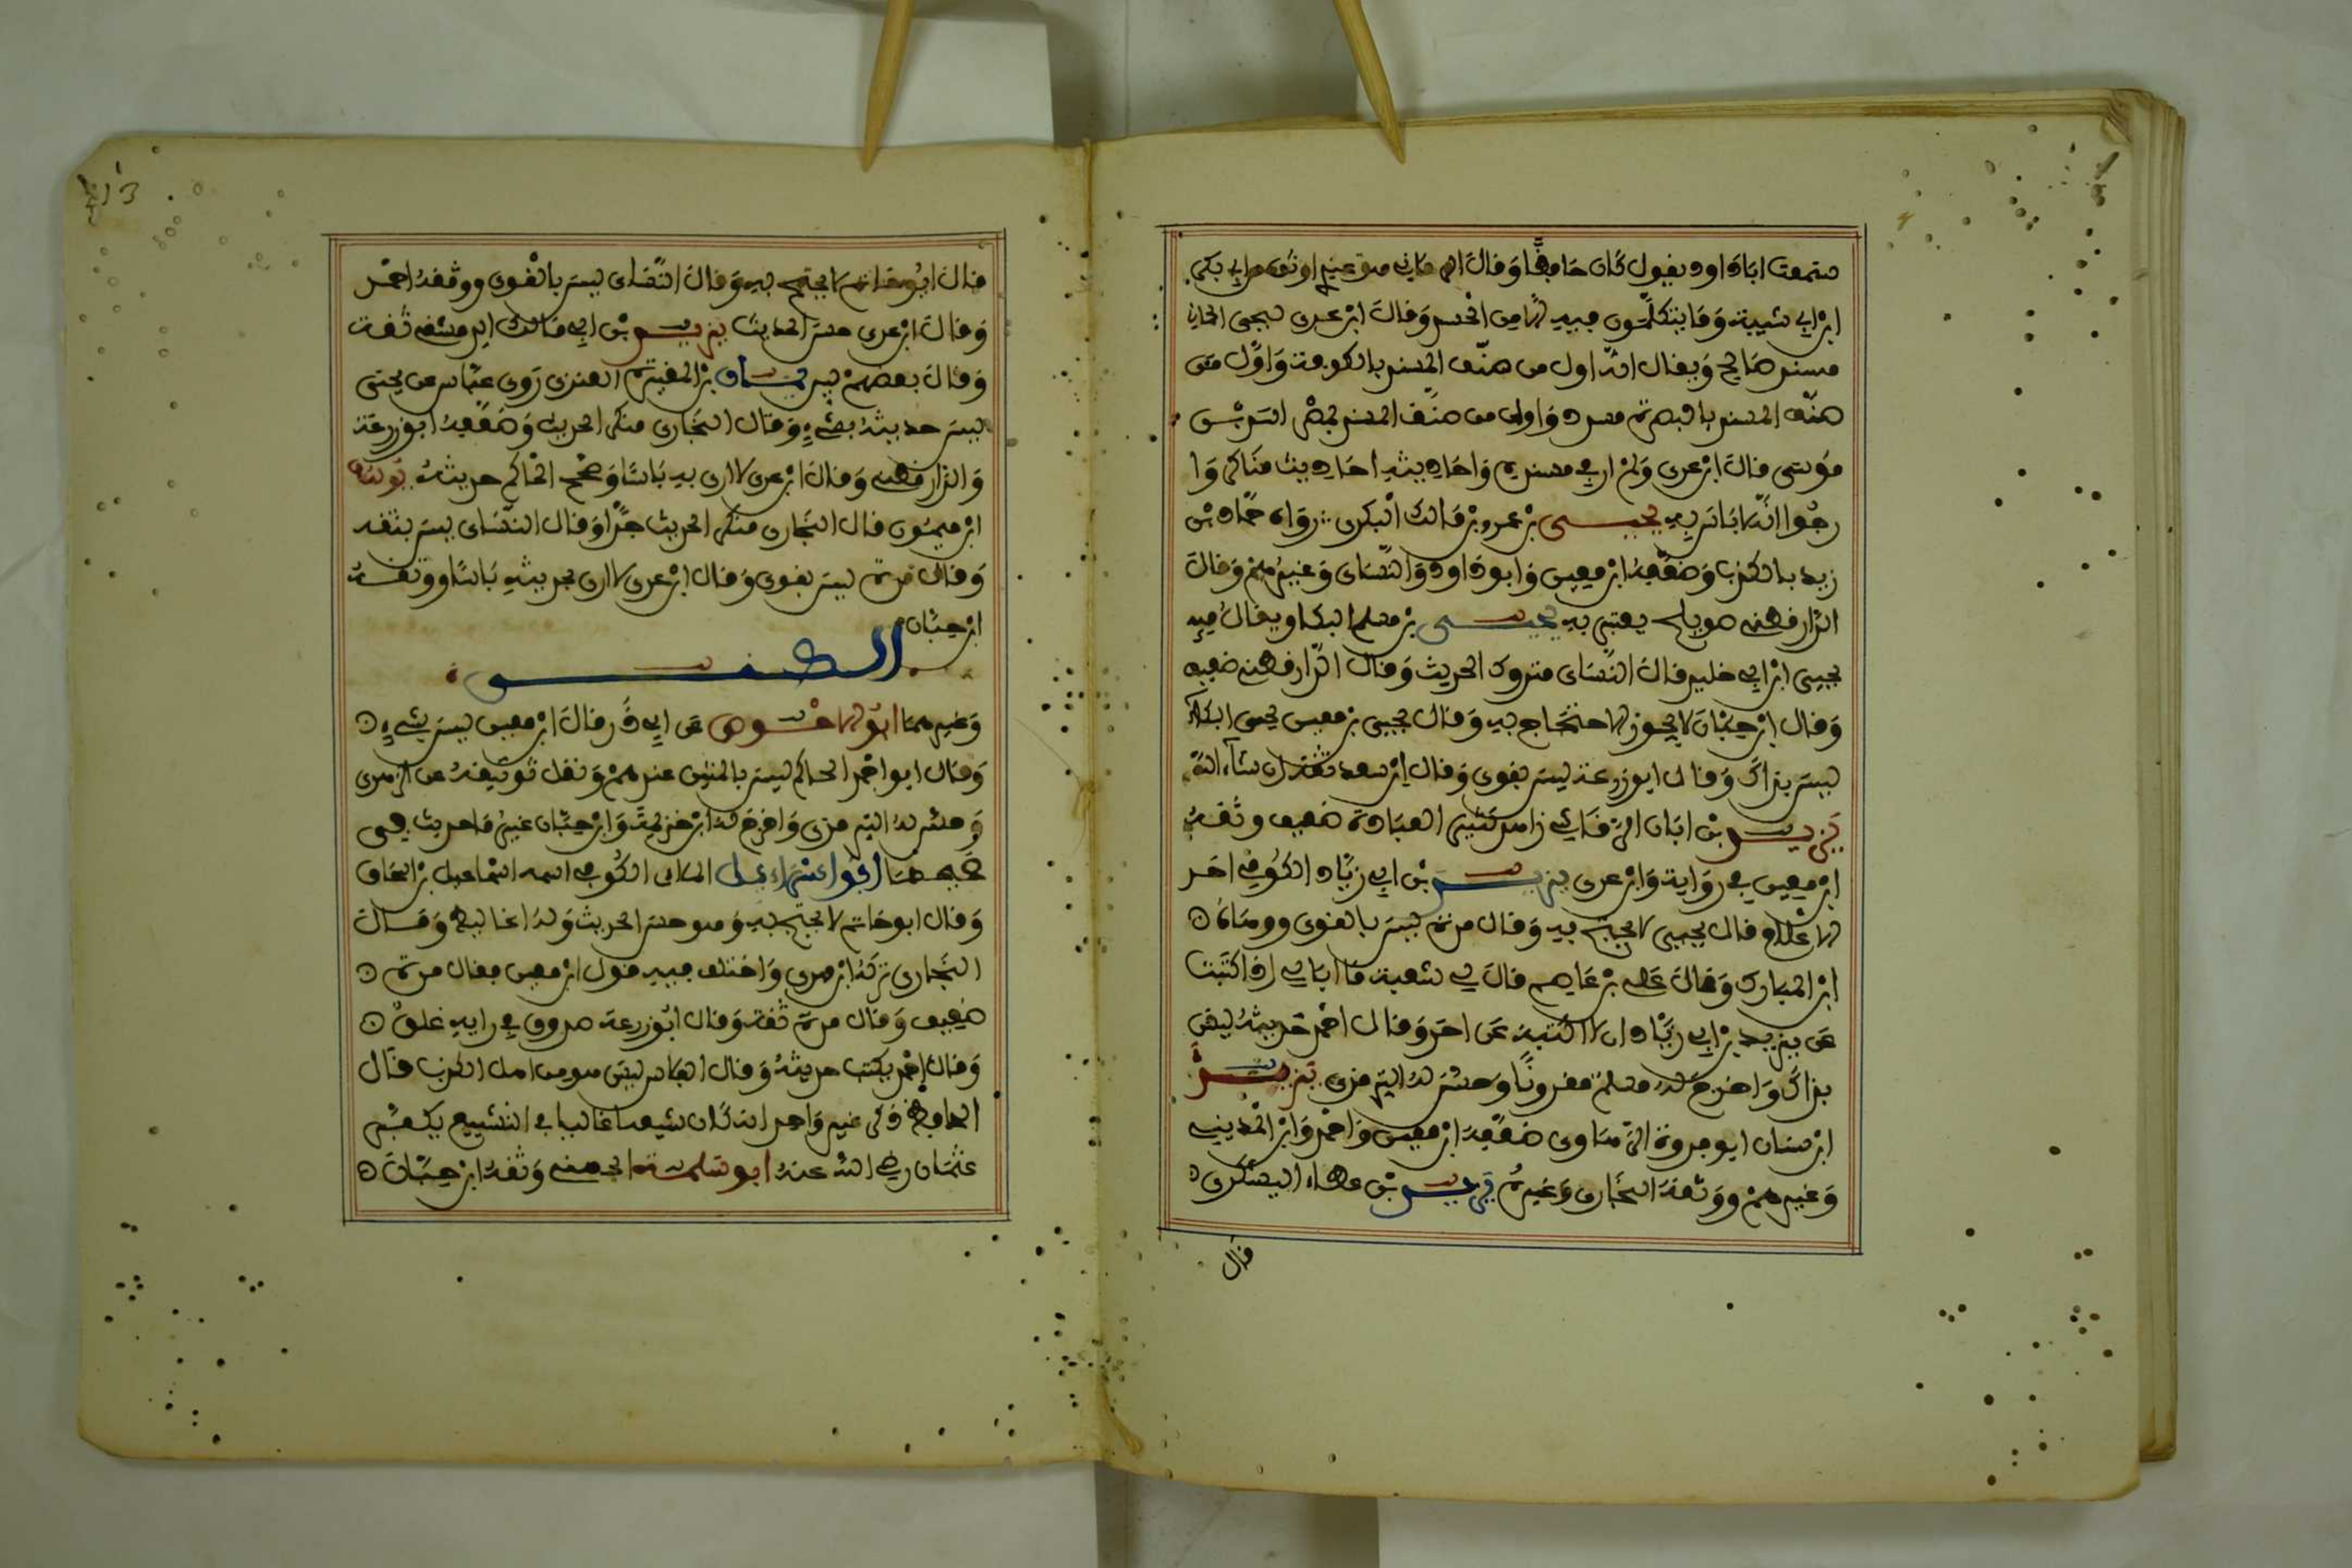 سمعت اباداود يقول كان حافظا وقال
ابن ابي شيبة وما يتكلمون فيه الا من الحسد وقال ابن عدي ليحيى الحماني
مسند صالح ويقال انه اول من صنف المسند بالكوفة واول من
صنف المسند بالبصرة مسدد واول من صنف المسند بمصر اسد بن
موسى قال ابن عدي ولم ار في مسنده واحاديثه احاديث مناكير وا
رجوا انه لا باس به يحيى بن عمرو بن مالك النكري رواه حماد بن
زيد بالكذب وضعفه ابن معين وابو داود والنسائي وغيرهم وقال
الدارقطني صويلح يعتبر به يحيى بن مسلم البكا ويقال فيه
يحيى ابن ابي خليد قال النسائي متروك الحديث وقال الدارقطني ضعيف
وقال ابن حبان لا يجوز الاحتجاج به وقال يحيى بن معين يحيى البكاء
ليس بذاك وقال ابو زرعة ليس بقوي وقال ابن سعد ثقة ان شاء الله
يزيد بن ابان الرقاشي زاهد كثير العبادة ضعيف وثقه
ابن معين في رواية وابن عدي يزيد بن ابي زياد الكوفي احد
الاعلام قال يحيى لا يحتج به وقال مرة ليس بالقوي ووهاه
ابن المبارك وقال علي بن عاصم قال لي شعبة ما ابالي اذا كتبت
عن يزيد بن ابي زياد ان لا اكتبه عن احد وقال احمد حديثه ليس
بذاك واخرج له مسلم مقرونا وحسن له الترمذي يزيد
ابن سنان ابو فروة الرهاوي ضعفه ابن معين واحمد وابن المديني
وغيرهم ووثقه البخاري وغيره يزيد بن عطاء اليشكري
قال
قال ابو حاتم لا يحتج به وقال النسائي ليس بالقوي ووثقه احمد
وقال ابن عدي حسن الحديث يزيد بن ابي مالك الدمشقي ثقة
وقال بعضهم لين يمان بن المغيرة العنزي روى عباس عن يحيى
ليس حديثه بشيء وقال البخاري منكر الحديث وضعفه ابو زرعة
والدارقطني وقال ابن عدي لا ارى به باسا وصحح الحاكم حديثه يوسف
ابن ميمون قال البخاري منكر الحديث جدا وقال النسائي ليس بثقة
وقال مرة ليس بقوي وقال ابن عدي لا ارى بحديثه باسا ووثقه
ابن حبان
الكنى
وغيرهما ابو الاحوص عن ابي ذر قال ابن معين ليس بشيء
وقال ابو احمد الحاكم ليس بالمتين عندهم ونقل توثيقه عن الزهري
وحسن له الترمذي واخرج له ابن خزيمة وابن حبان غير ما حديث في
صحيحهما ابو اسراءيل الملاي الكوفي اسمه اسماعيل بن اسحاق
وقال ابو حاتم لا يحتج به وهو حسن الحديث وله اغاليط وقال
البخاري تركه ابن مهدي واختلف فيه قول ابن معين فقال مرة
ضعيف وقال مرة ثقة وقال ابو زرعة صدوق في رايه غلو
وقال احمد يكتب حديثه وقال الفلاس ليس هو من اهل الكذب قال
الحافظ ذكر غير واحد انه كان شيعيا غاليا في التشيع يكفر
عثمان رضي الله عنه ابو سلمة الجهني وثقه ابن حبان